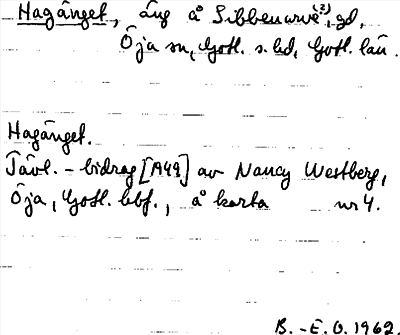 Hagänget, äng å Sibbenarve (?), gd,
Öja sn, Gotl. s. hd, Gotl. län.
Hagänget.
Tävl. - bidrag [1949] av Nancy Westberg,
Öja, Gotl. hbf., å karta nr 4.
B.-E. O. 1962.